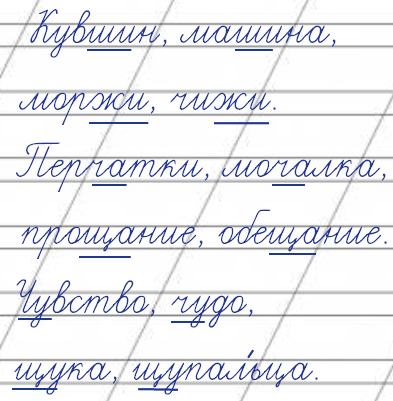 Кувшин, машина,
моржи, чижи.
Перчатки, мочалка,
прощание, обещание.
Чувство, чудо,
щука, щупальца.